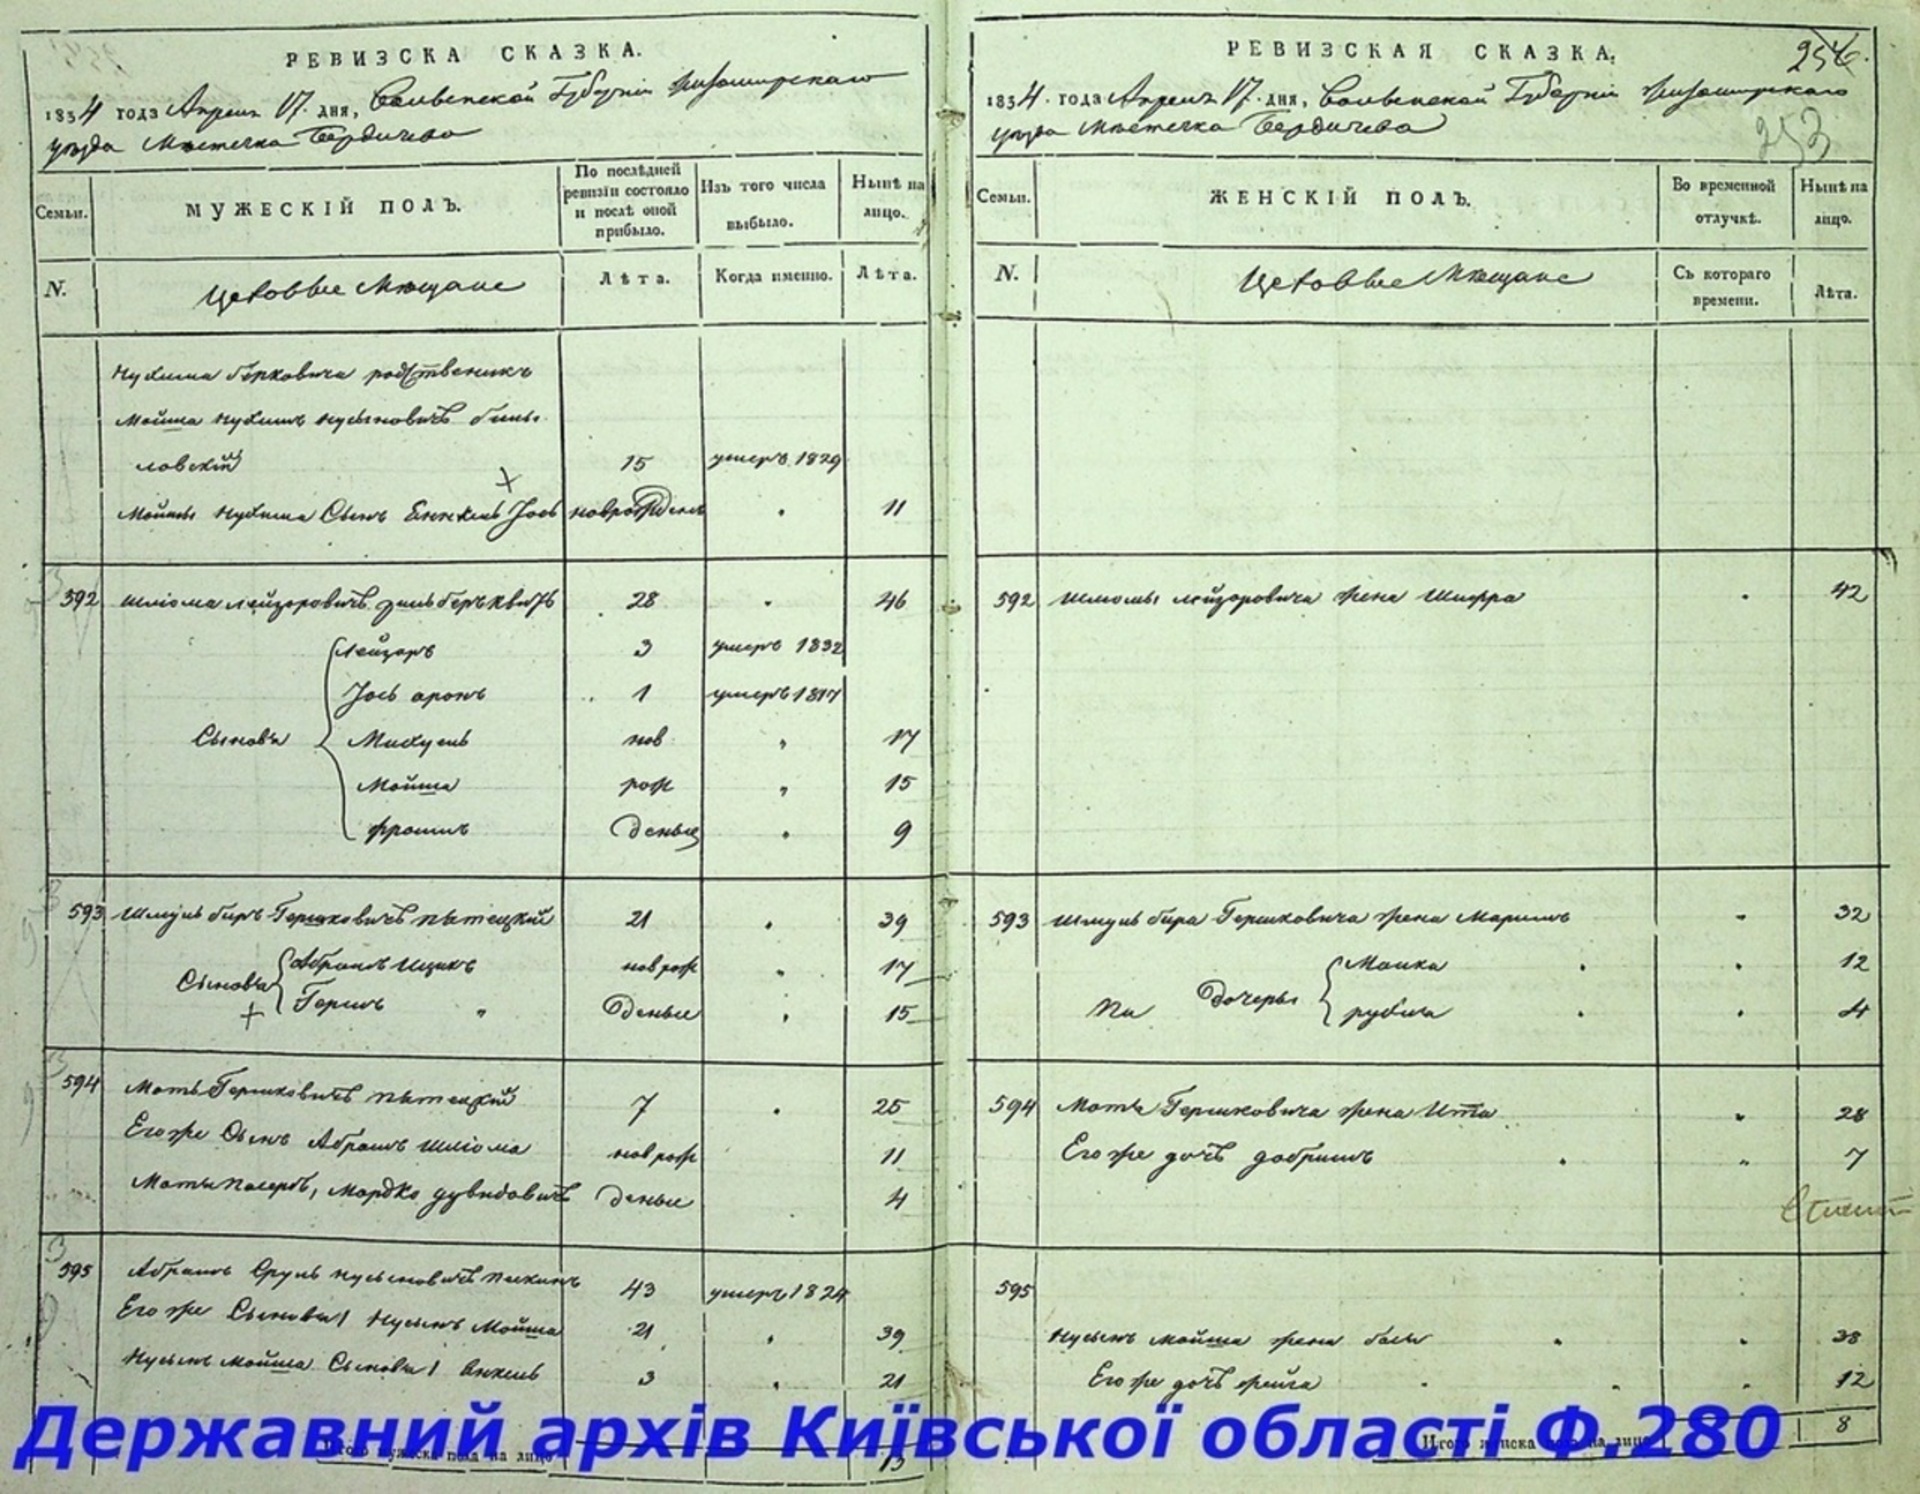 РЕВИЗСКА СКАЗКА.
1834 года Апреля 17. дня, Волынской Губерніи Житомирскаго
уезда Местечка Бердичева
Семьи.
МУЖЕСКІЙ ПОЛЪ.
По послѣдней ревизіи состояло и послѣ оной прибыло.
Изъ того числа выбыло.
Нынѣ на лицо.
N.
Цеховые Мещане
Лѣта.
Когда именно.
Лѣта.
Нухима Берковича родственикъ
Мойша Нухимъ Нусыновичъ
ловскій 15 умеръ 1829
Мойшы Нухима Сынъ Янкель Іось новорожденъ 11
592 Шліома Лейзоровичъ 28 46
Лейзоръ 3 умеръ 1832
Іось Аронъ 1 умеръ 1817
Сыновья Михуель нов 17
Мойша рож 15
Фроимъ деные 9
593 Шмуль Беръ Гершковичъ 21 39
Сыновья Абрамъ Ицикъ нов рож 17
Гершъ деные 15
594 Моть Гершковичъ 7 25
Его же Сынъ Абрамъ Шліома нов рож 11
Мотя пасербъ, Мордко Дувидовичъ деные 4
595 Абрамъ Сруль Нусыновичъ 43 умеръ 1824
Его же Сыновья 1 Нусынъ Мойша 21 39
Нусынъ Мойша Сыновья 1 Янкель 3 21
Итого мужеска пола на лицо 13
РЕВИЗСКАЯ СКАЗКА.
256.
1834. года Апреля 17. дня, Волынской Губерніи Житомирскаго
уезда Местечка Бердичева
253
Семьи.
ЖЕНСКІЙ ПОЛЪ.
Во временной отлучкѣ.
Нынѣ на лицо.
N.
Цеховые Мещане
Съ котораго времени.
Лѣта.
592 Шлиомы Лейзоровича жена Шифра 42
593 Шмуль Бера Гершковича жена Маримъ 32
Малка 12
Дочеры
Рухля 4
594 Мотя Гершковича жена Ита 28
Его же дочь Добришъ 7
595
Нусынъ Мойша жена Бася 38
Его же дочь Фейга 12
Итого женска пола на лицо 8
Державний архів Київської області Ф.280